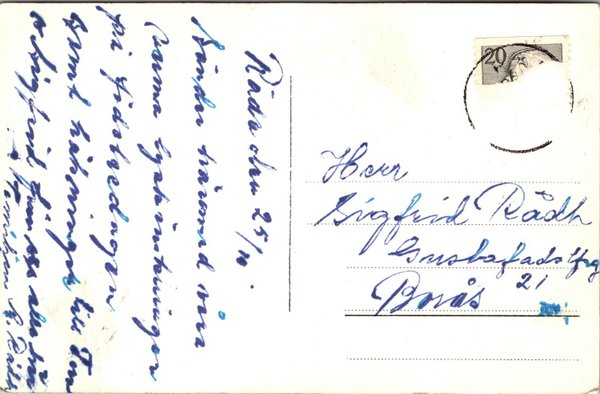 Råda den 25/10.
Sänder härmed våra
varma lyckönskningar
på födelsedagen
samt hälsningar till Em
o Sigfrid från oss alla här
Familjen G. Rådh
20
Herr
Sigfrid Rådh
21
Borås